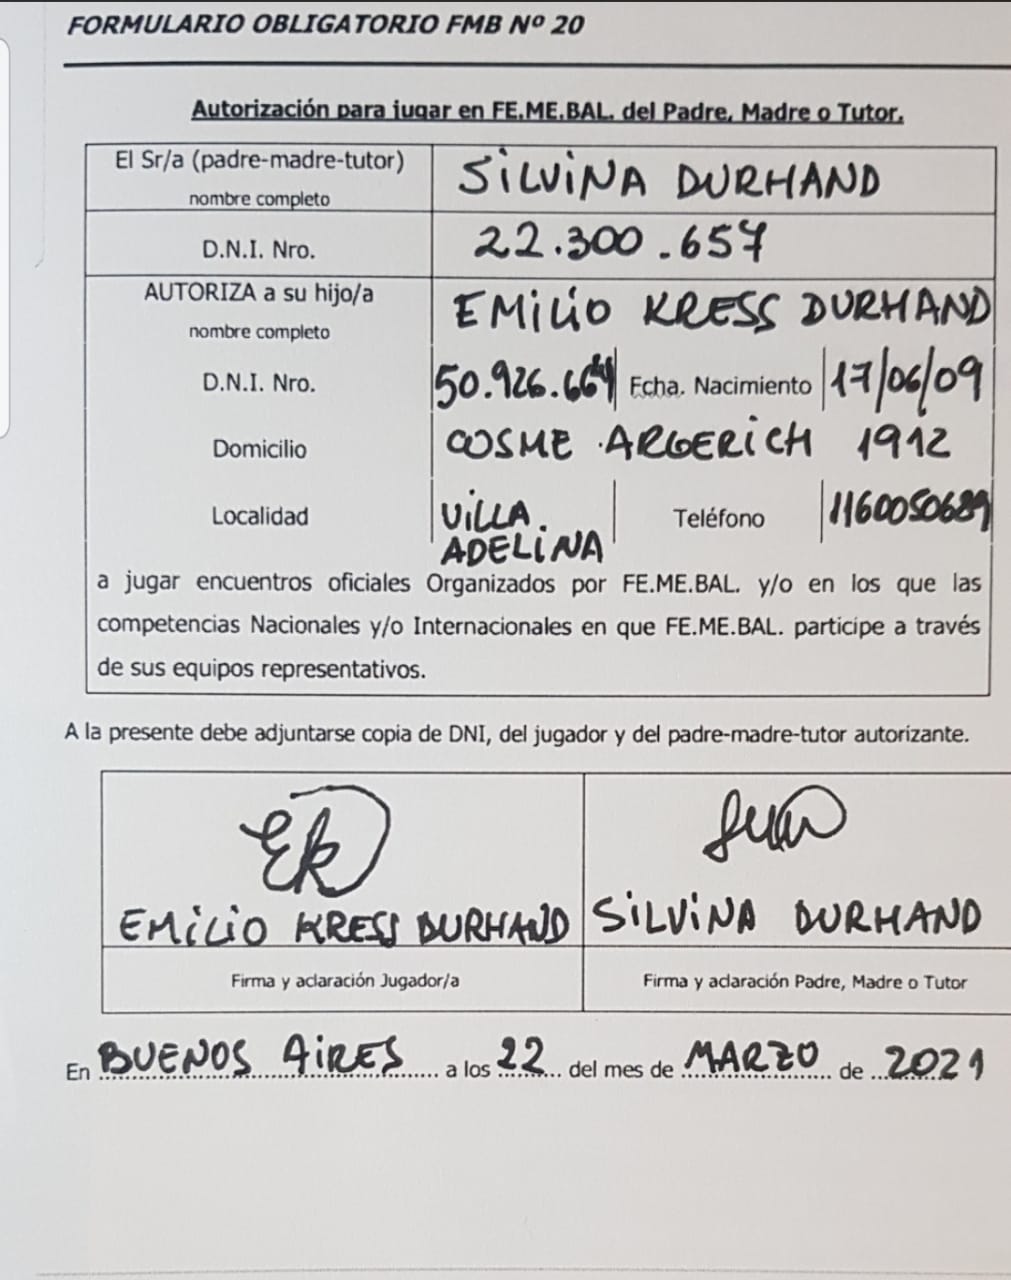 FORMULARIO OBLIGATORIO FMB Nº 20
Autorización para jugar en FE.ME.BAL. del Padre, Madre o Tutor.
El Sr/a (padre-madre-tutor)
nombre completo
SILVINA DURHAND
D.N.I. Nro.
22.300.657
AUTORIZA a su hijo/a
nombre completo
EMILIO KRESS DURHAND
D.N.I. Nro.
50.926.664 Fcha. Nacimiento 17/06/09
Domicilio
COSME ARGERICH 1912
Localidad
VILLA
ADELINA
Teléfono 1160050689
a jugar encuentros oficiales Organizados por FE.ME.BAL. y/o en los que las
competencias Nacionales y/o Internacionales en que FE.ME.BAL. participe a través
de sus equipos representativos.
A la presente debe adjuntarse copia de DNI, del jugador y del padre-madre-tutor autorizante.
EMILIO KRESS DURHAND
SILVINA DURHAND
Firma y aclaración Jugador/a
Firma y aclaración Padre, Madre o Tutor
En BUENOS AIRES a los 22 del mes de MARZO de 2021